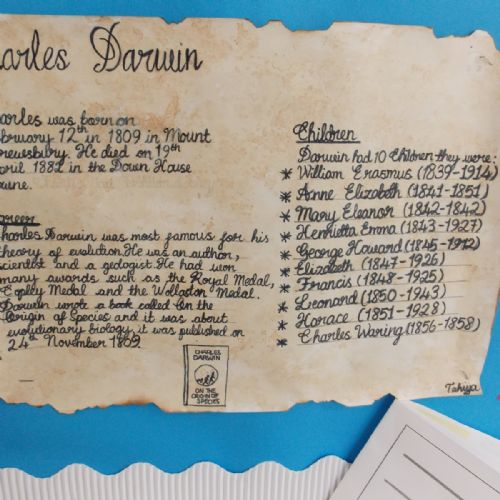 arles Darwin
arles was born on
bruary 12th in 1809 in Mount
rewsbury. He died on 19th
pril 1882 in the Down House
owne.
areer
Charles Darwin was most famous for his
theory of evolution. He was an author,
scientist and a geologist. He had won
many awards such as the Royal Medal,
Copley Medal and the Wollaston Medal.
Darwin wrote a book called On the
Origin of Species and it was about
evolutionary biology, it was published on
24th November 1859
CHARLES
DARWIN
ON THE
ORIGIN OF
SPECIES
Children
Darwin had 10 children they were:
* William Erasmus (1839-1914)
* Anne Elizabeth (1841-1851)
* Mary Eleanor (1842-1842)
* Henrietta Emma (1843-1927)
* George Howard (1845-1912)
* Elizabeth (1847-1926)
* Francis (1848-1925)
* Leonard (1850-1943)
* Horace (1851-1928)
* Charles Waring (1856-1858)
Tahiya